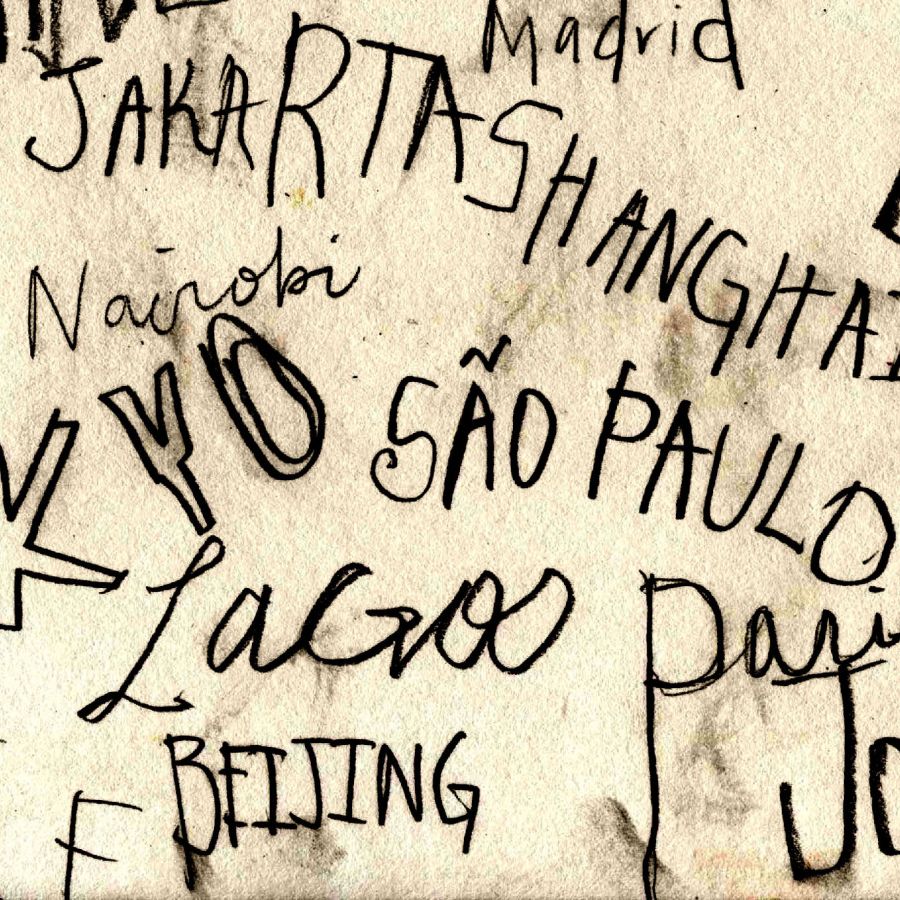 Madrid
JAKARTA
SHANGHAI
Nairobi
YO
SÃO PAULO
Lagos
Pari
BEIJING
J
F